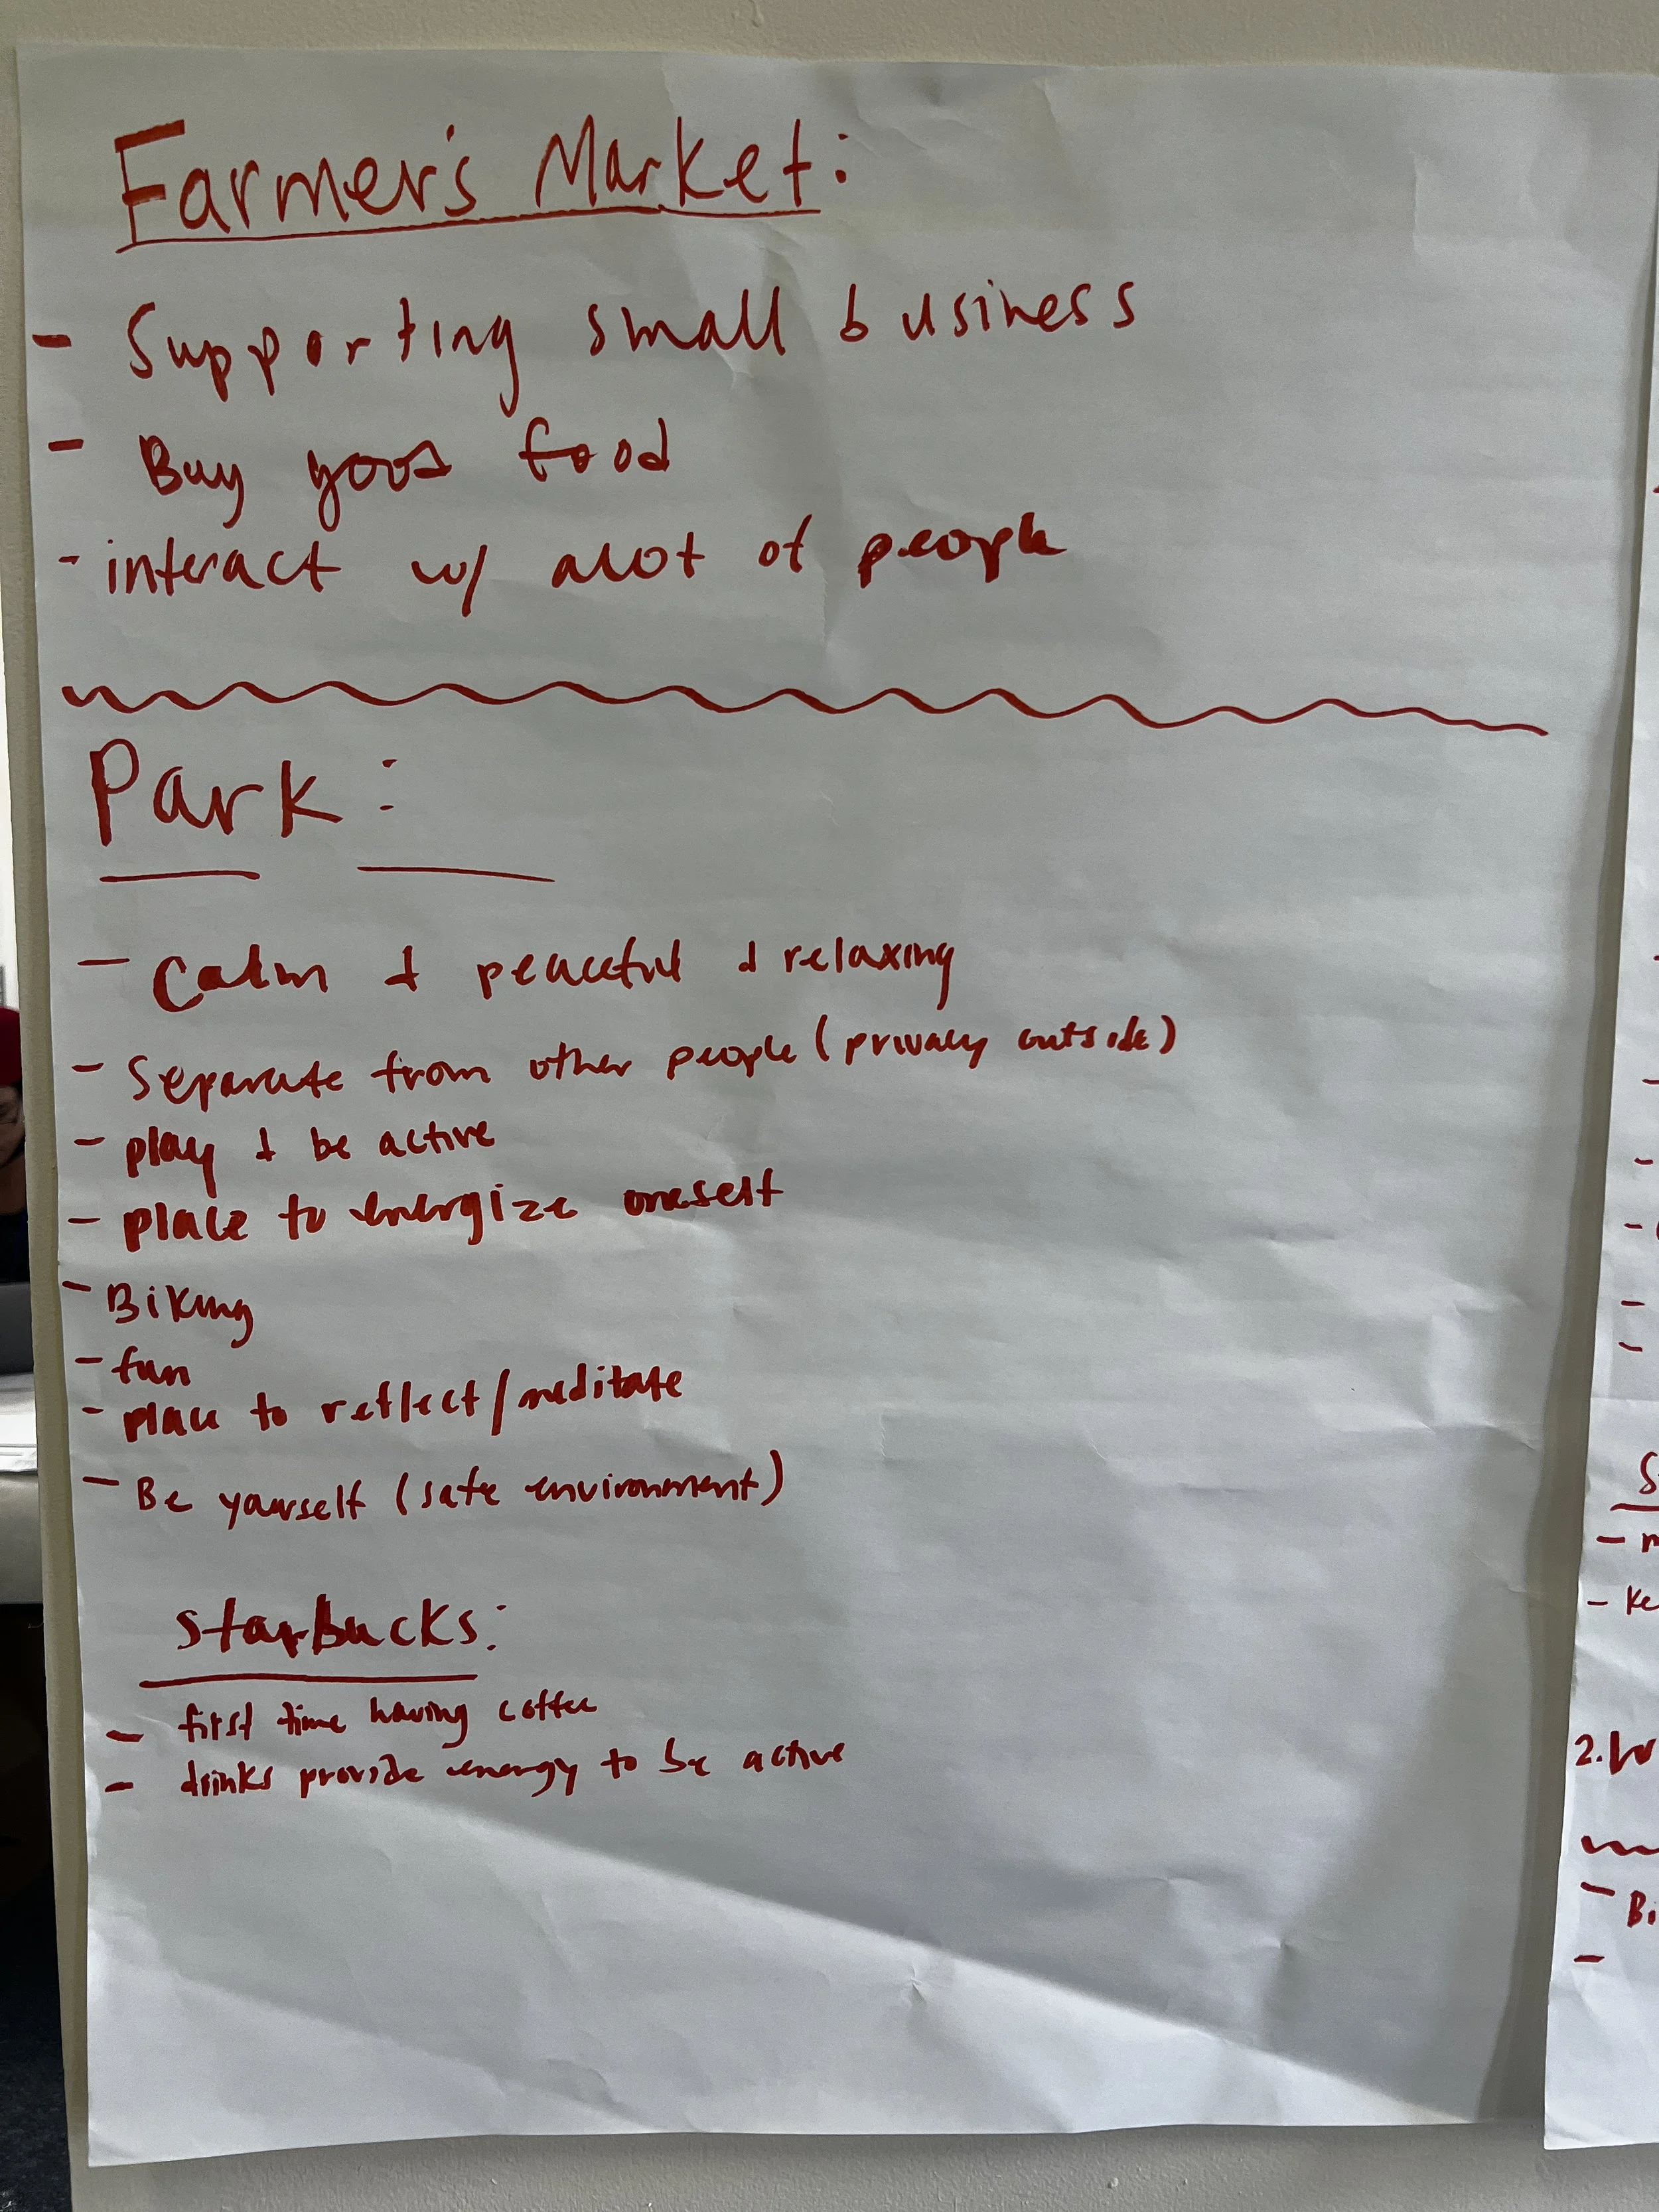 Farmer's Market:
- Supporting small business
- Buy good food
- interact w/ alot of people
Park:
- Calm & peaceful & relaxing
- Separate from other people (privacy outside)
- play & be active
- place to energize oneself
- Biking
- fun
- place to reflect/meditate
- Be yourself (safe environment)
StarBucks:
- first time having coffee
- drinks provide energy to be active
2.